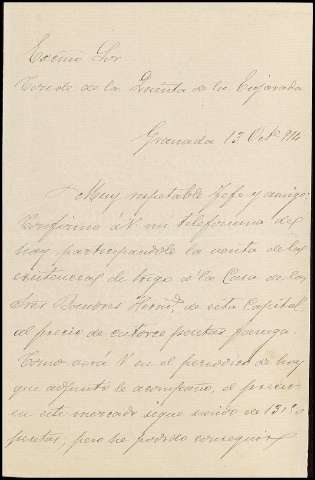 Excmo Sor
Conde de la Quinta de la Enjarada
Granada 13 Oct 914
Muy respetable Jefe y amigo:
Confirmo á V mi telefonema de
hoy participandole la venta de las
existencias de trigo á la Casa de los
Sres Hern.º de esta Capital
al precio de catorce pesetas fanega.
Como verá V en el periodico de hoy
que adjunto le acompaño, el precio
en este mercado sigue siendo de
pesetas, pero he podido conseguir